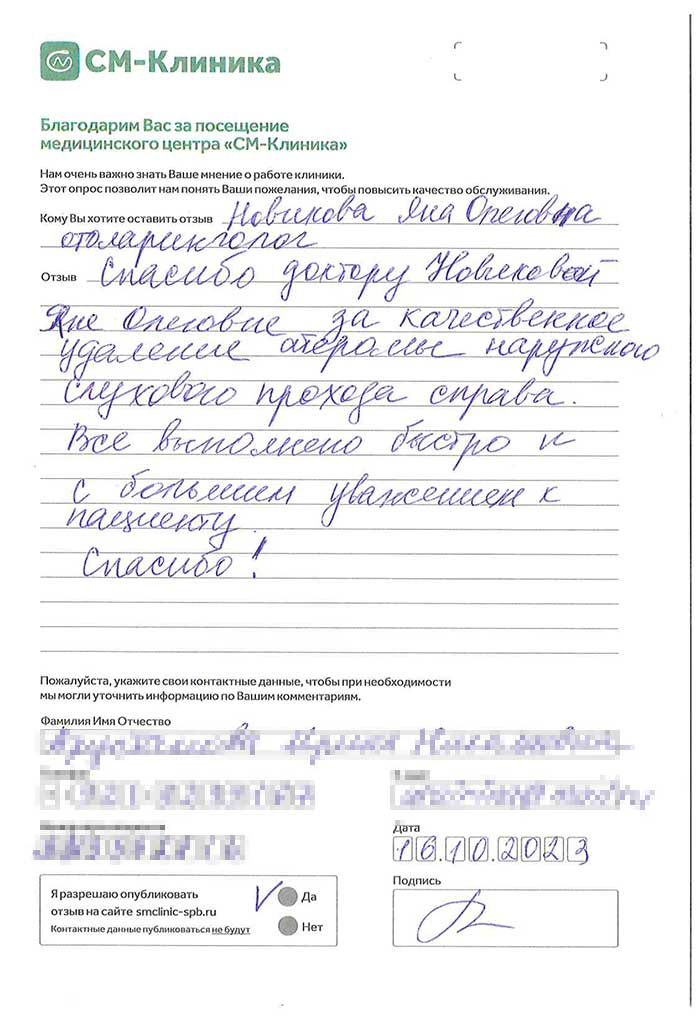 СМ-Клиника
Благодарим Вас за посещение
медицинского центра «СМ-Клиника»
Нам очень важно знать Ваше мнение о работе клиники.
Этот опрос позволит нам понять Ваши пожелания, чтобы повысить качество обслуживания.
Кому Вы хотите оставить отзыв Новикова Яна Олеговна
отоларинголог
Отзыв Спасибо доктору Новиковой
Яне Олеговне за качественное
удаление атеромы наружного
слухового прохода справа.
Все выполнено быстро и
с большим уважением к
пациенту.
Спасибо!
Пожалуйста, укажите свои контактные данные, чтобы при необходимости
мы могли уточнить информацию по Вашим комментариям.
Фамилия Имя Отчество
Дата
16.10.2023
Я разрешаю опубликовать
отзыв на сайте smclinic-spb.ru
Контактные данные публиковаться не будут
Да
Нет
Подпись